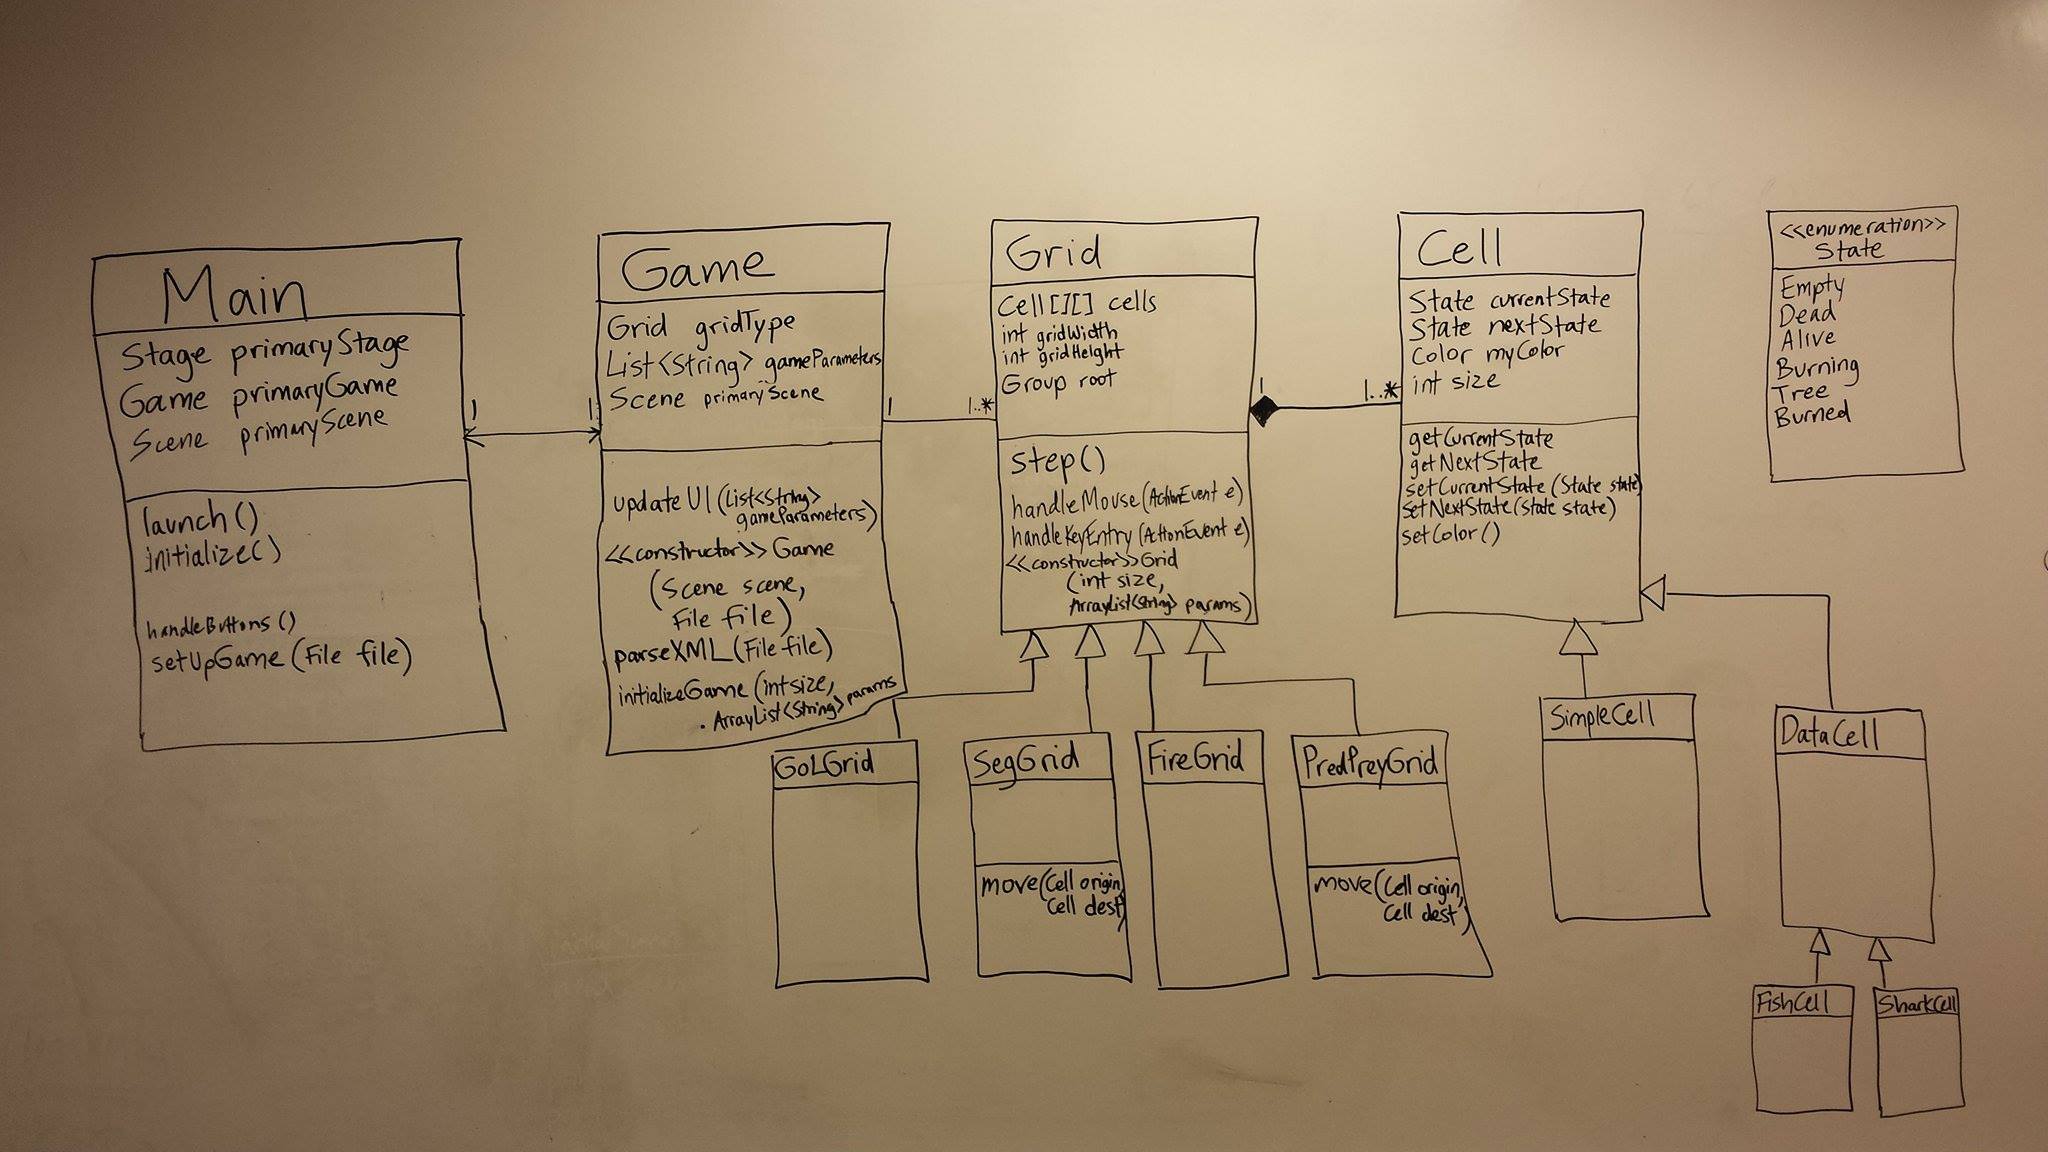 Main
Stage primaryStage
Game primaryGame
Scene primaryScene
launch()
initialize()
handleButtons()
setUpGame(File file)
1
1
Game
Grid gridType
List<String> gameParameters
Scene primaryScene
updateUI(List<String>
gameParameters)
<<constructor>> Game
(Scene scene,
File file)
parseXML(File file)
initializeGame(int size,
ArrayList<String> params
1
1..*
Grid
Cell[][] cells
int gridWidth
int gridHeight
Group root
step()
handleMouse(ActionEvent e)
handleKeyEntry(ActionEvent e)
<<constructor>>Grid
(int size,
ArrayList<String> params)
1
1..*
Cell
State currentState
State nextState
Color myColor
int size
getCurrentState
getNextState
setCurrentState(State state)
setNextState(State state)
setColor()
<<enumeration>>
State
Empty
Dead
Alive
Burning
Tree
Burned
GoLGrid
SegGrid
move(Cell origin,
Cell dest)
FireGrid
PredPreyGrid
move(Cell origin,
Cell dest)
SimpleCell
DataCell
FishCell
SharkCell